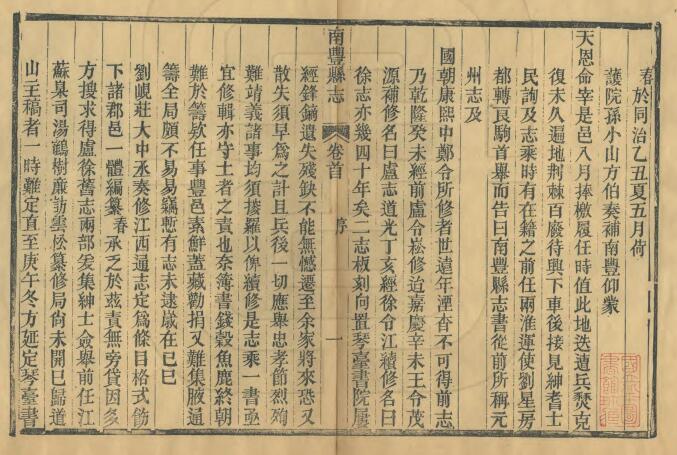 春於同治乙丑夏五月荷
護院孫小山方伯奏補南豐仰蒙
天恩命宰是邑八月捧檄履任時值此地迭遭兵燹克
復未久遍地荆棘百廢待興下車後接見紳耆士
民詢及志乘時有在籍之前任兩淮運使劉星房
都轉良駒首舉而告曰南豐縣志書從前所稱元
州志及
國朝康熙中鄭令所修者世遠年湮杳不可得前志
乃乾隆癸未經前盧令崧修迨嘉慶辛未王令茂
源補修名曰盧志道光丁亥經徐令江續修名曰
徐志亦幾四十年矣二志板刻向置琴臺書院屢
南豐縣志
卷首
序
一
經鋒鏑遺失殘缺不能無憾遷至余家將來恐又
散失須早為之計且兵後一切應舉忠孝節烈殉
難靖義諸事均須搜羅以俾續修是志乘一書亟
宜修輯亦守土者之責也奈簿書錢穀魚鹿終朝
難於籌欵任事豐邑素鮮蓋藏勸捐又難集腋通
籌全局頗不易易竊慙有志未逮歲在己巳
劉峴莊大中丞奏修江西通志定為條目格式飭
下諸郡邑一體編纂春承乏於茲責無旁貸因多
方搜求得盧徐舊志兩部爰集紳士僉舉前任江
蘇臬司湯鶴樹廉訪雲松纂修局尚未開巳歸道
山主稿者一時難定直至庚午冬方延定琴臺書